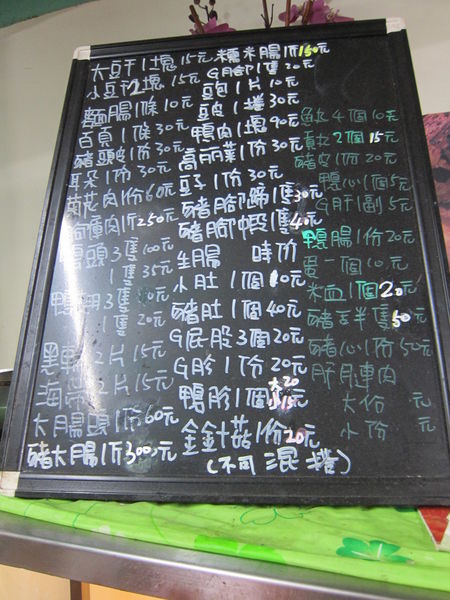 大豆干1塊15元
小豆干2塊15元
麵腸1條10元
百頁1條30元
豬頭皮1份30元
耳朵1份30元
菊花肉1份60元
肉1斤250元
鴨頭3隻100元
1隻35元
鴨翅3隻
1隻20元
黑輪2片15元
海帶2片15元
大腸頭1份60元
豬大腸1斤300元
糯米腸1斤150元
G腳1隻20元
豆包1片10元
豆皮1捲30元
鴨肉1塊90元
高丽菜1份30元
豆子1份30元
豬腳蹄1隻30元
豬腳蝦1隻40元
生腸 時价
小肚1個10元
豬肚1個40元
G屁股3個20元
G胗1份20元
鴨胗1個大20
小15元
金針菇1份20元
(不可混搭)
魚丸4個10元
貢丸2個15元
豬皮1份20元
鴨心1個5元
G肝1副5元
鴨腸1份20元
蛋一個10元
米血1個20元
豬舌半隻50元
豬心1份50元
肝肉
大份 元
小份 元